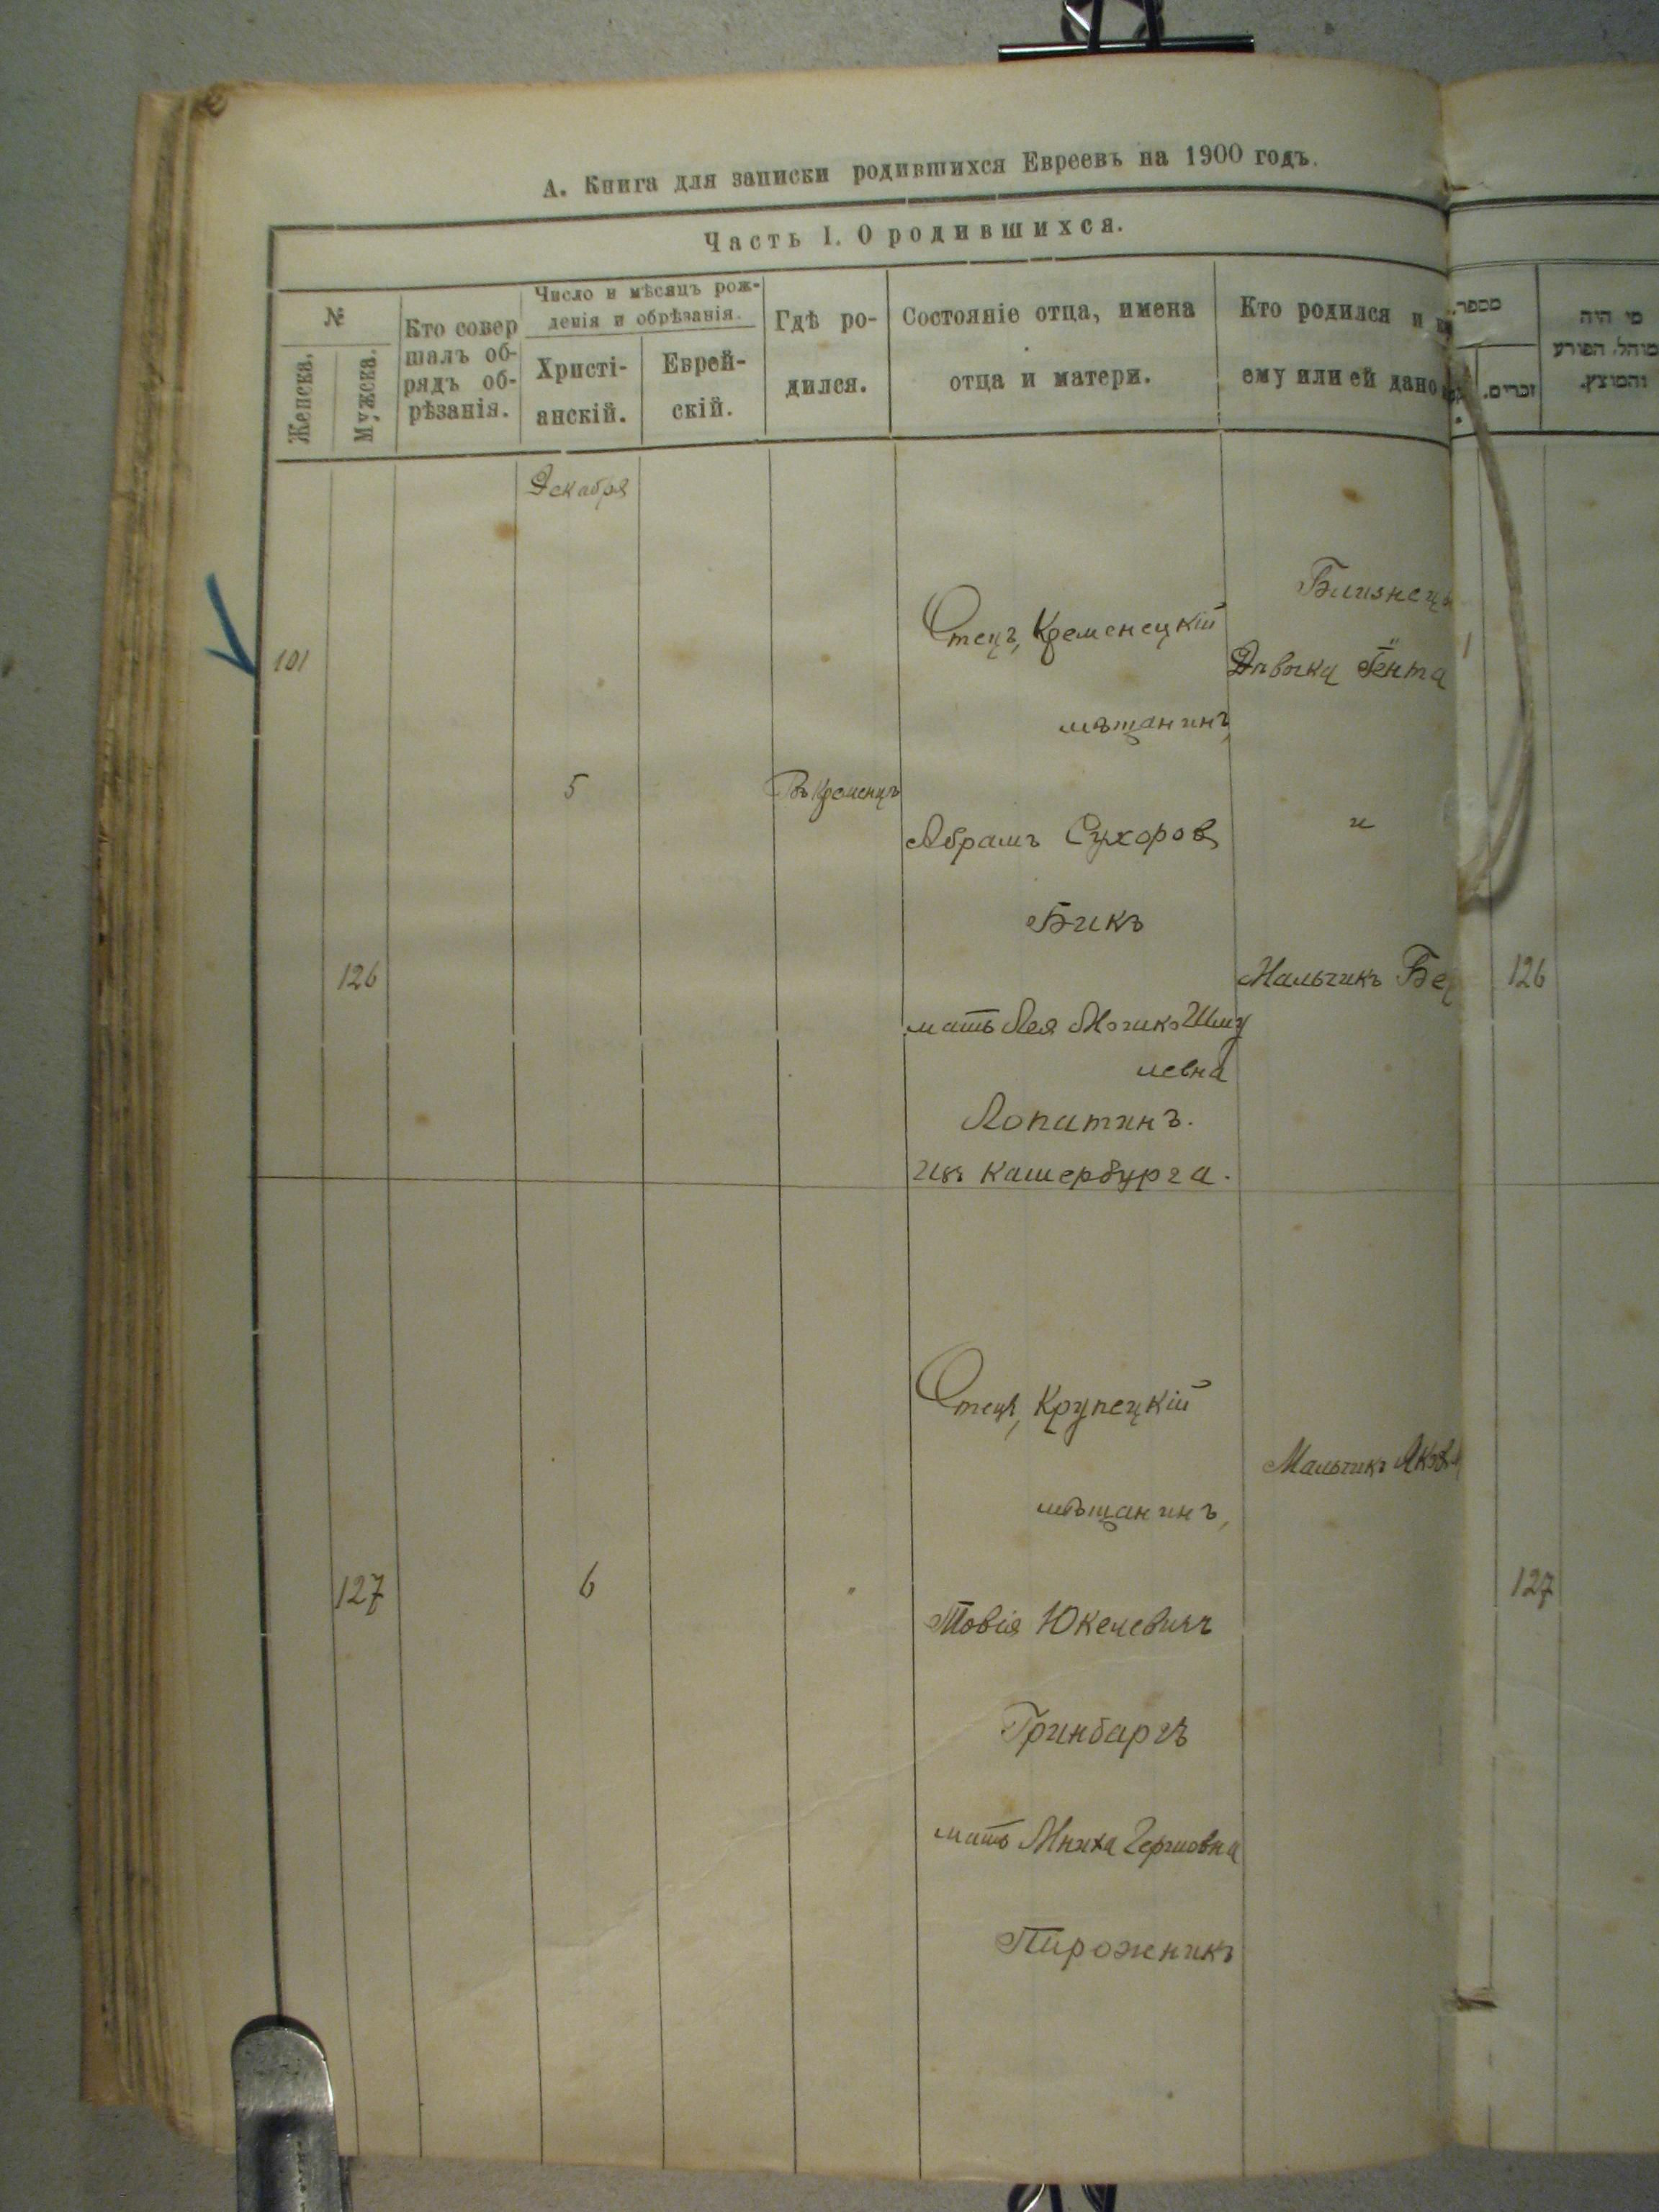 А. Книга для записки родившихся Евреевъ на 1900 годъ.
Часть I. О родившихся.
№
Женска.
Мужска.
Кто совер
шалъ об-
рядъ об-
рѣзанія.
Число и мѣсяцъ рож-
денія и обрѣзанія.
Христі-
анскій.
Еврей-
скій.
Гдѣ ро-
дился.
Состояніе отца, имена
отца и матери.
Кто родился и
ему или ей дано
מספר.
זכרים.
מי היה
מוהל, הפורע
והמוצץ.
Декабря
101
126
5
Въ Кременцѣ
Отецъ, Кременецкій
мѣщанинъ,
Абрамъ
Бикъ
мать Лея
левна
Лопатинъ.
изъ Кашербурга.
Близнецы
Дѣвочка Гента
и
Мальчикъ Бе
126
127
6
"
Отецъ, Крупецкій
мѣщанинъ,
Товія Юкелевичъ
Гринбаргъ
мать
Пироженикъ
Мальчикъ
127